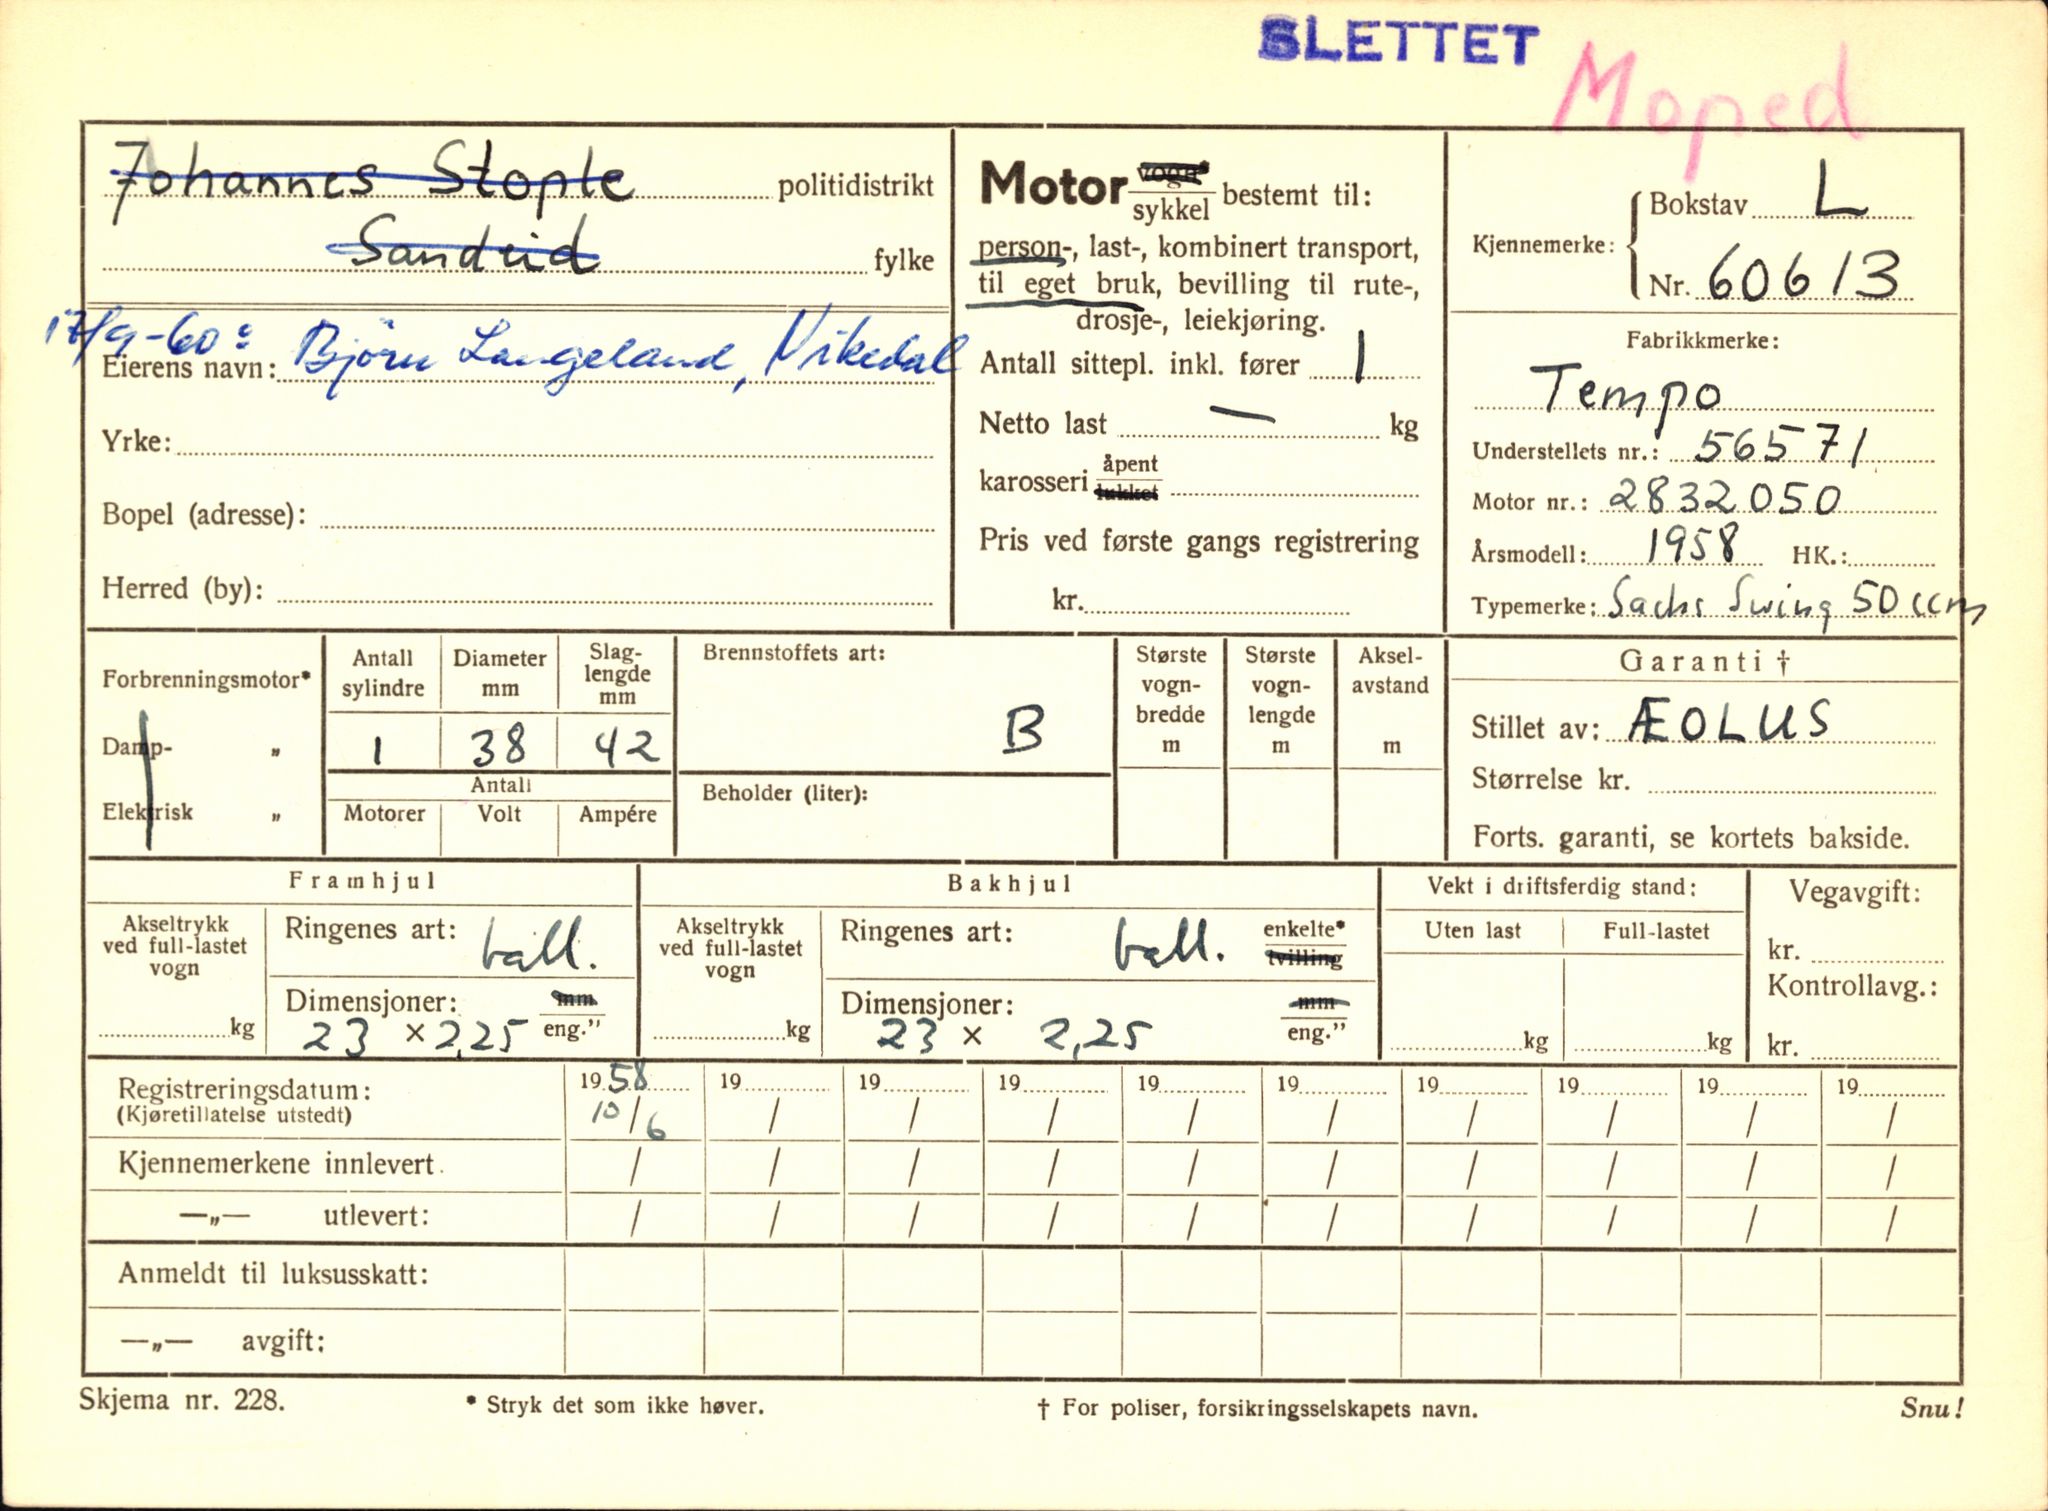 SLETTET
Moped
Johannes Stople politidistrikt
Sandeid fylke
17/9-60:
Eierens navn: Björn Langeland, Vikedal
Yrke:
Bopel (adresse):
Herred (by):
Motor vogn* / sykkel bestemt til:
person-, last-, kombinert transport,
til eget bruk, bevilling til rute-,
drosje-, leiekjøring.
Antall sittepl. inkl. fører 1
Netto last — kg
karosseri åpent / lukket
Pris ved første gangs registrering
kr.
Kjennemerke: { Bokstav L
Nr. 60613
Fabrikkmerke:
Tempo
Understellets nr.: 56571
Motor nr.: 2832050
Årsmodell: 1958 HK.:
Typemerke: Sachs Swing 50 ccm
Forbrenningsmotor*
Damp- „
Elektrisk „
Antall sylindre
Diameter mm
Slag-lengde mm
1 38 42
Antall
Motorer Volt Ampére
Brennstoffets art:
B
Beholder (liter):
Største vogn-bredde m
Største vogn-lengde m
Aksel-avstand m
Garanti †
Stillet av: ÆOLUS
Størrelse kr.
Forts. garanti, se kortets bakside.
Framhjul
Akseltrykk ved full-lastet vogn
kg
Ringenes art: ball.
Dimensjoner: mm / eng."
23 × 2,25
Bakhjul
Akseltrykk ved full-lastet vogn
kg
Ringenes art: ball. enkelte* / tvilling
Dimensjoner: mm / eng."
23 × 2,25
Vekt i driftsferdig stand:
Uten last Full-lastet
kg kg
Vegavgift:
kr.
Kontrollavg.:
kr.
Registreringsdatum: 1958 19 19 19 19 19 19 19 19 19
(Kjøretillatelse utstedt) 10/6 / / / / / / / / /
Kjennemerkene innlevert / / / / / / / / / /
—„— utlevert: / / / / / / / / / /
Anmeldt til luksusskatt:
—„— avgift:
Skjema nr. 228. * Stryk det som ikke høver. † For poliser, forsikringsselskapets navn. Snu!